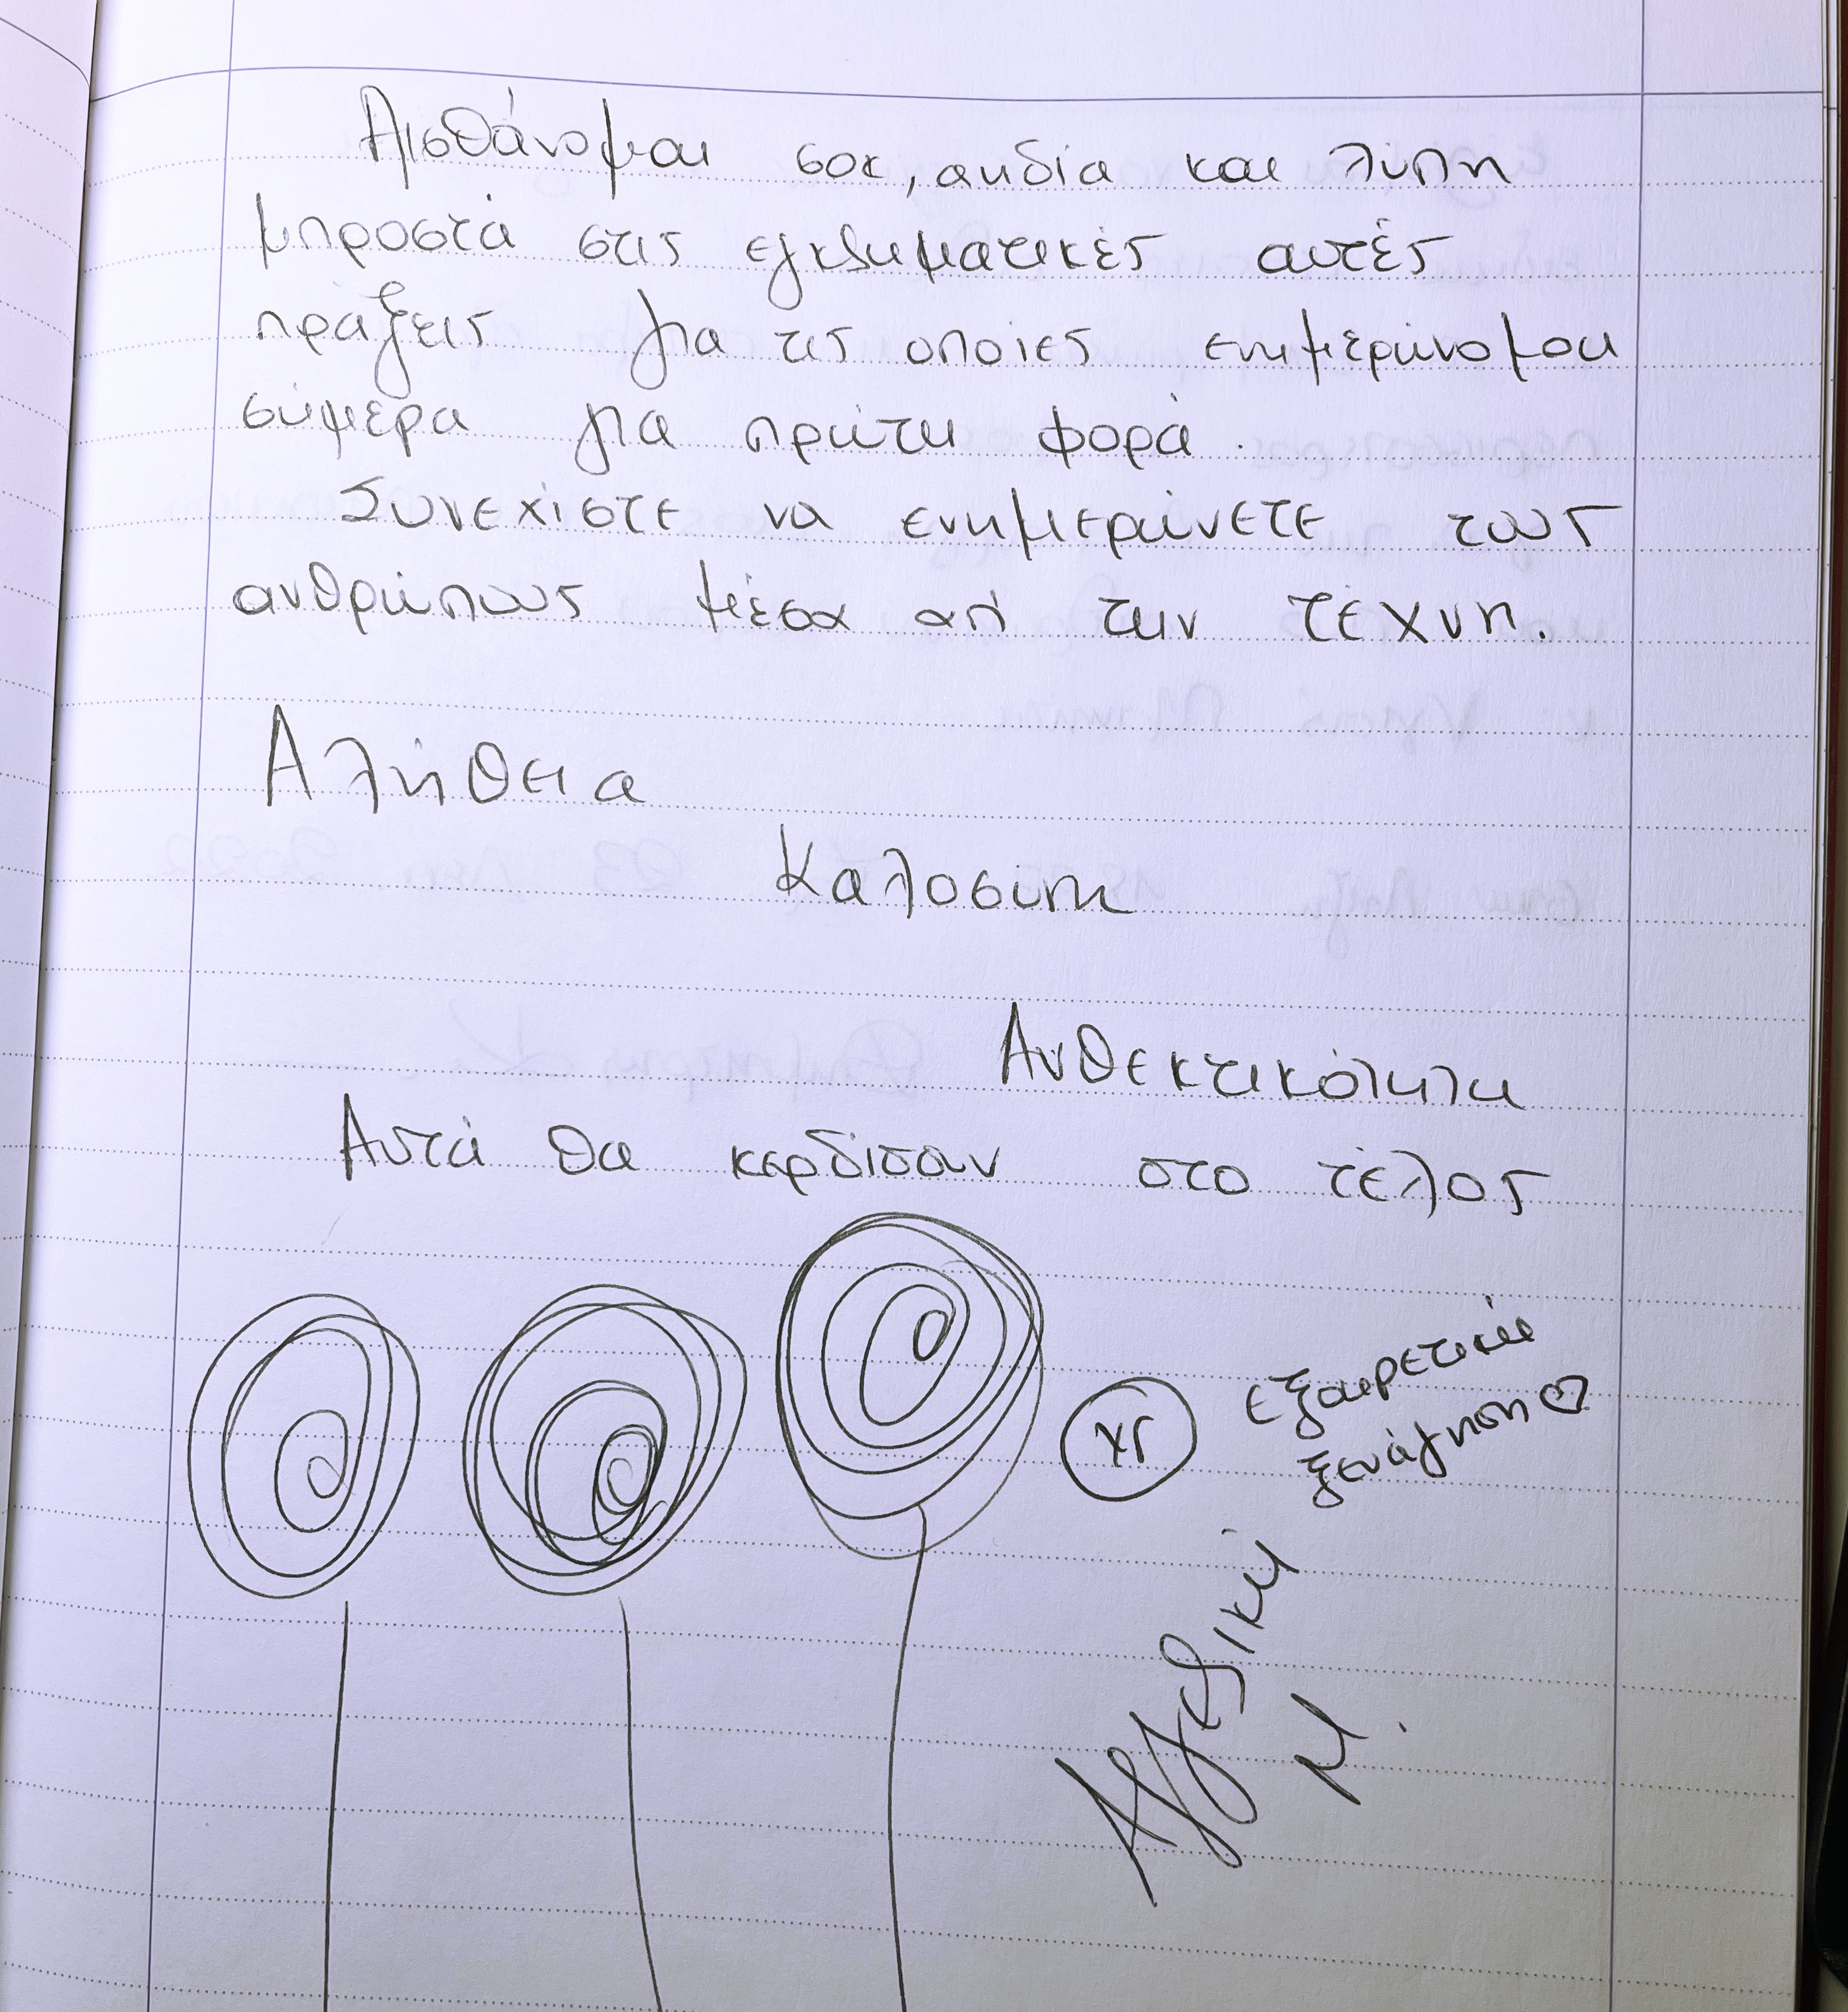 Αισθάνομαι σοκ, αηδία και λύπη
μπροστά στις εγκληματικές αυτές
πράξεις για τις οποίες ενημερώνομαι
σήμερα για πρώτη φορά.
Συνεχίστε να ενημερώνετε τους
ανθρώπους μέσα απ' την τέχνη.
Αλήθεια
Καλοσύνη
Ανθεκτικότητα
Αυτά θα κερδίσουν στο τέλος
ΥΓ εξαιρετική
ξενάγηση ♡
Αγγελική
Μ.